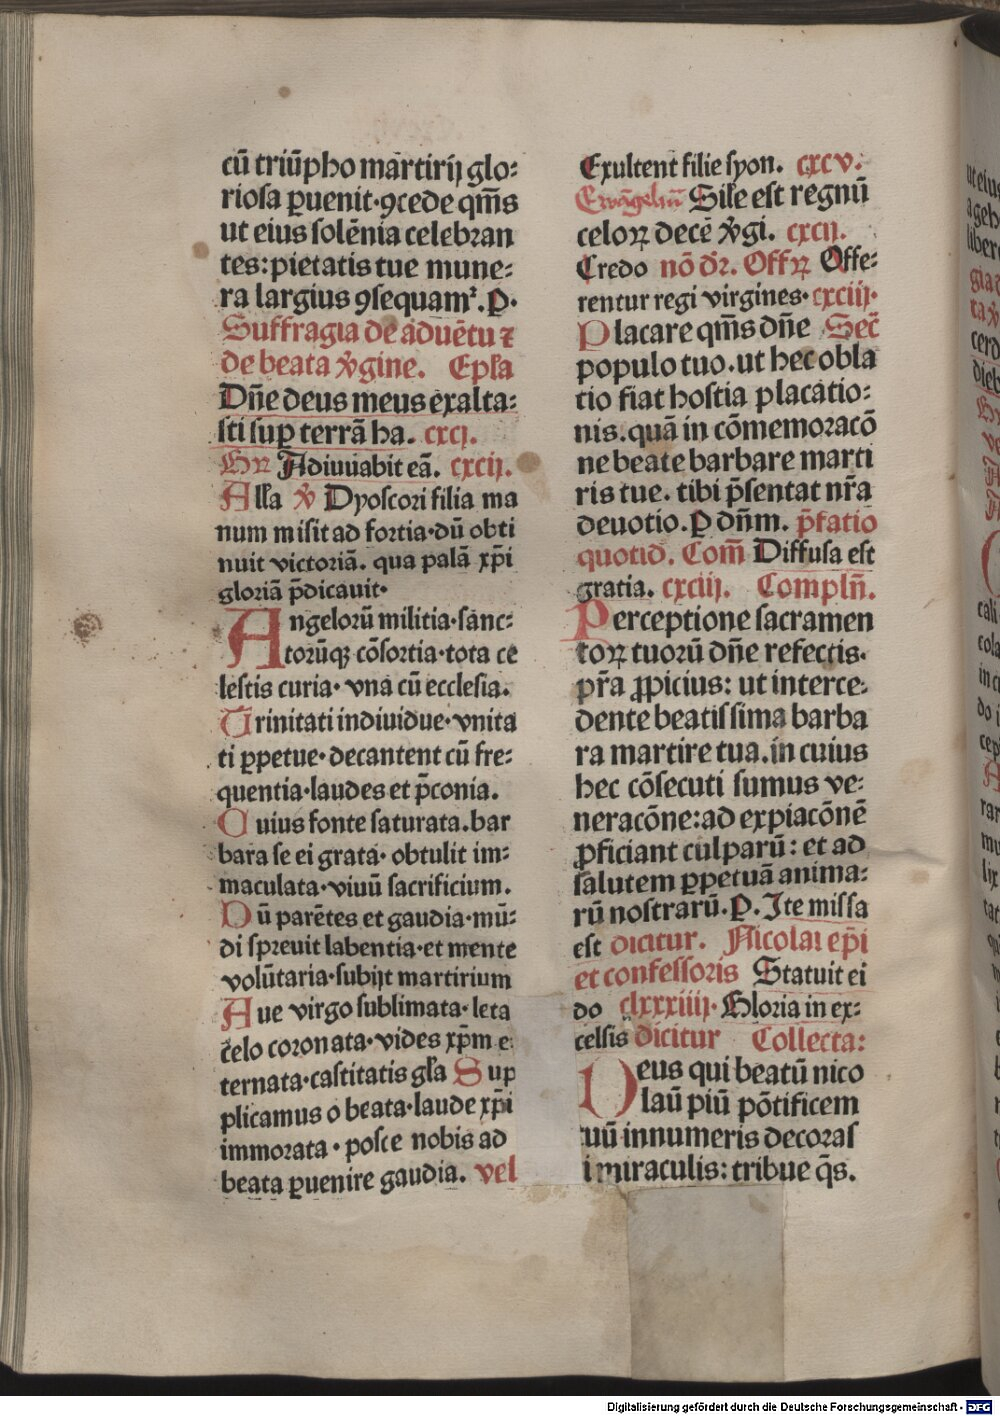 cū triūpho martirij glo:
riosa ꝑuenit·ꝯcede qm̄s
ut eius solēnia celebran
tes: pietatis tue mune:
ra largius ꝯsequamꝛ. P.
Suffragia de aduētu ⁊
de beata v̊gine. Epl̄a
Dn̄e deus meus exalta:
sti suꝑ terrā ha. cxcj.
Gꝝ Adiuuabit eā. cxcij.
All̄a v̊ Dyoscori filia ma
num misit ad fortia·dū obti
nuit victoriā. qua palā xp̄i
gloriā p̄dicauit·
Angelorū militia·sanc:
torūqꝫ cōsortia·tota ce
lestis curia· vna cū ecclesia.
Trinitati indiuidue·vnita
ti ꝑpetue·decantent cū fre:
quentia·laudes et p̄conia.
Cuius fonte saturata.bar
bara se ei grata· obtulit im:
maculata·viuū sacrificium.
Dū parētes et gaudia·mū:
di spreuit labentia·et mente
volūtaria·subijt martirium
Aue virgo sublimata·leta
celo coronata·vides xp̄m e
ternata·castitatis gl̄a Sup
plicamus o beata·laude xp̄i
immorata· posce nobis ad
beata ꝑuenire gaudia. vel
Exultent filie syon. cxcv.
Ewāgeliū Sil̄e est regnū
celoꝝ decē v̊gi. cxcij.
Credo nō dr̄. Offꝝ Offe:
rentur regi virgines·cxciij·
Placare qm̄s dn̄e Sec̄
populo tuo.ut hec obla
tio fiat hostia placatio:
nis.quā in cōmemoracō
ne beate barbare marti
ris tue. tibi p̄sentat nr̄a
deuotio.P dn̄m. p̄fatio
quotid. Com̄ Diffusa est
gratia. cxciij. Compln̄.
Perceptione sacramen
toꝝ tuorū dn̄e refectis.
pr̄a ꝓpicius: ut interce:
dente beatissima barba
ra martire tua.in cuius
hec cōsecuti sumus ve:
neracōne:ad expiacōnē
ꝓficiant culparū: et ad
salutem ꝑpetuā anima:
rū nostrarū.P. Ite missa
est dicitur. Nicolai ep̄i
et confessoris Statuit ei
do clxxxiiij· Gloria in ex:
celsis dicitur Collecta:
Deus qui beatū nico
laū piū pōtificem
tuū innumeris decoras
ti miraculis: tribue q̄s.
Digitalisierung gefördert durch die Deutsche Forschungsgemeinschaft - DFG